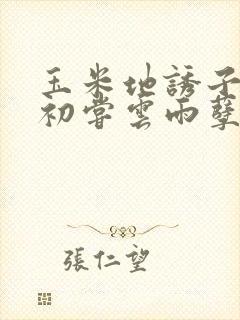 玉米地誘子
初嘗雲雨孽
張仁望